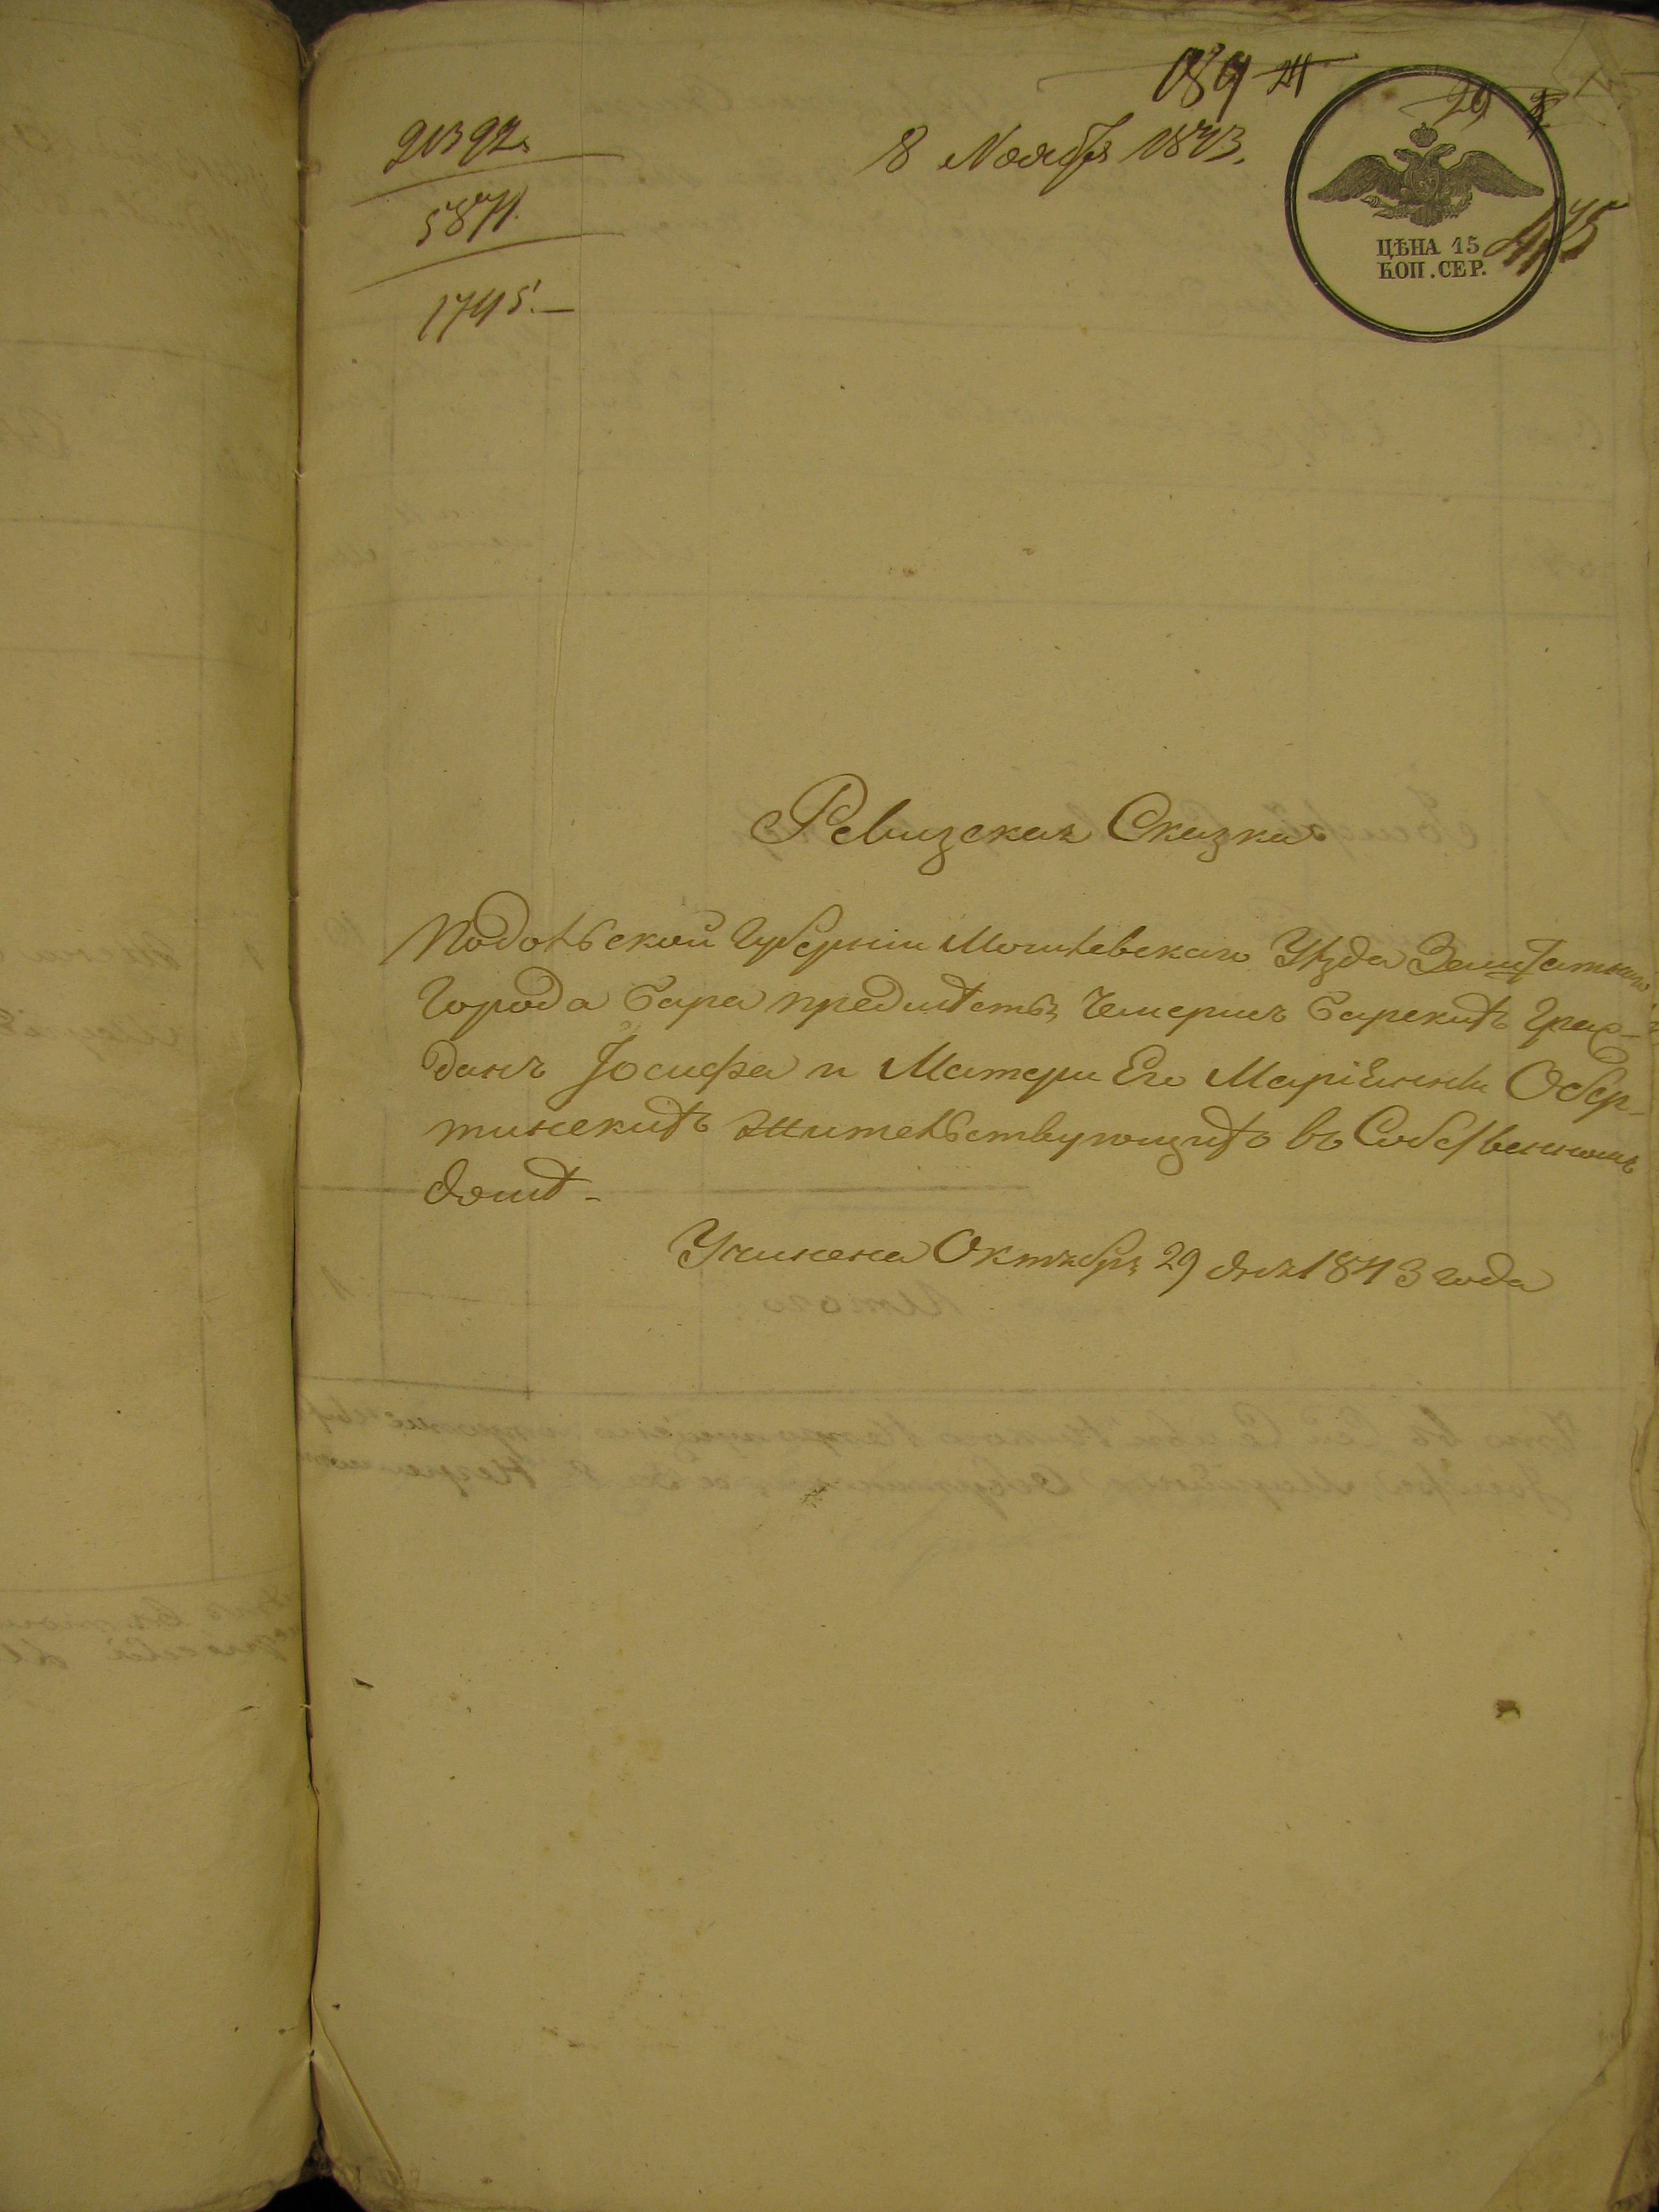 21392.
5871.
1745.
8 Ноября 1843.
29
ЦѢНА 15
КОП. СЕР.
Ревизская Сказка
Подольской Губерніи Могилевскаго Уѣзда Заштатнаго
Города Бара предмѣстья Чемериса Барскихъ Граж-
данъ Іосифа и Матери Его Маріянны Обер-
тинскихъ жительствующихъ въ Собственномъ
домѣ-
Учинена Октября 29 дня 1843 года